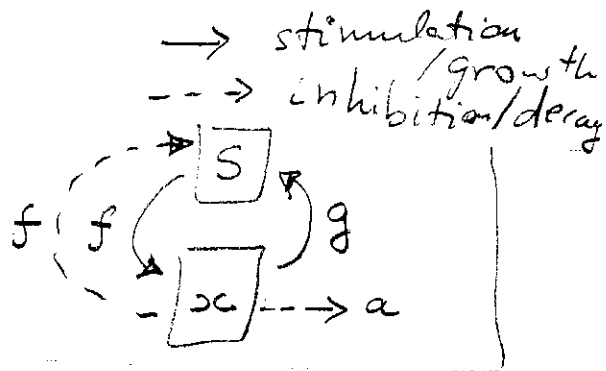 stimulation
/growth
inhibition/decay
S
f f g
x a